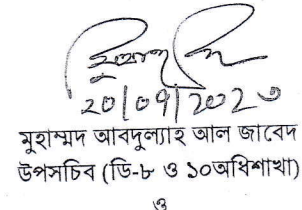 20/09/2023
মুহাম্মদ আবদুল্যাহ আল জাবেদ
উপসচিব (ডি-৮ ও ১০অধিশাখা)
ও